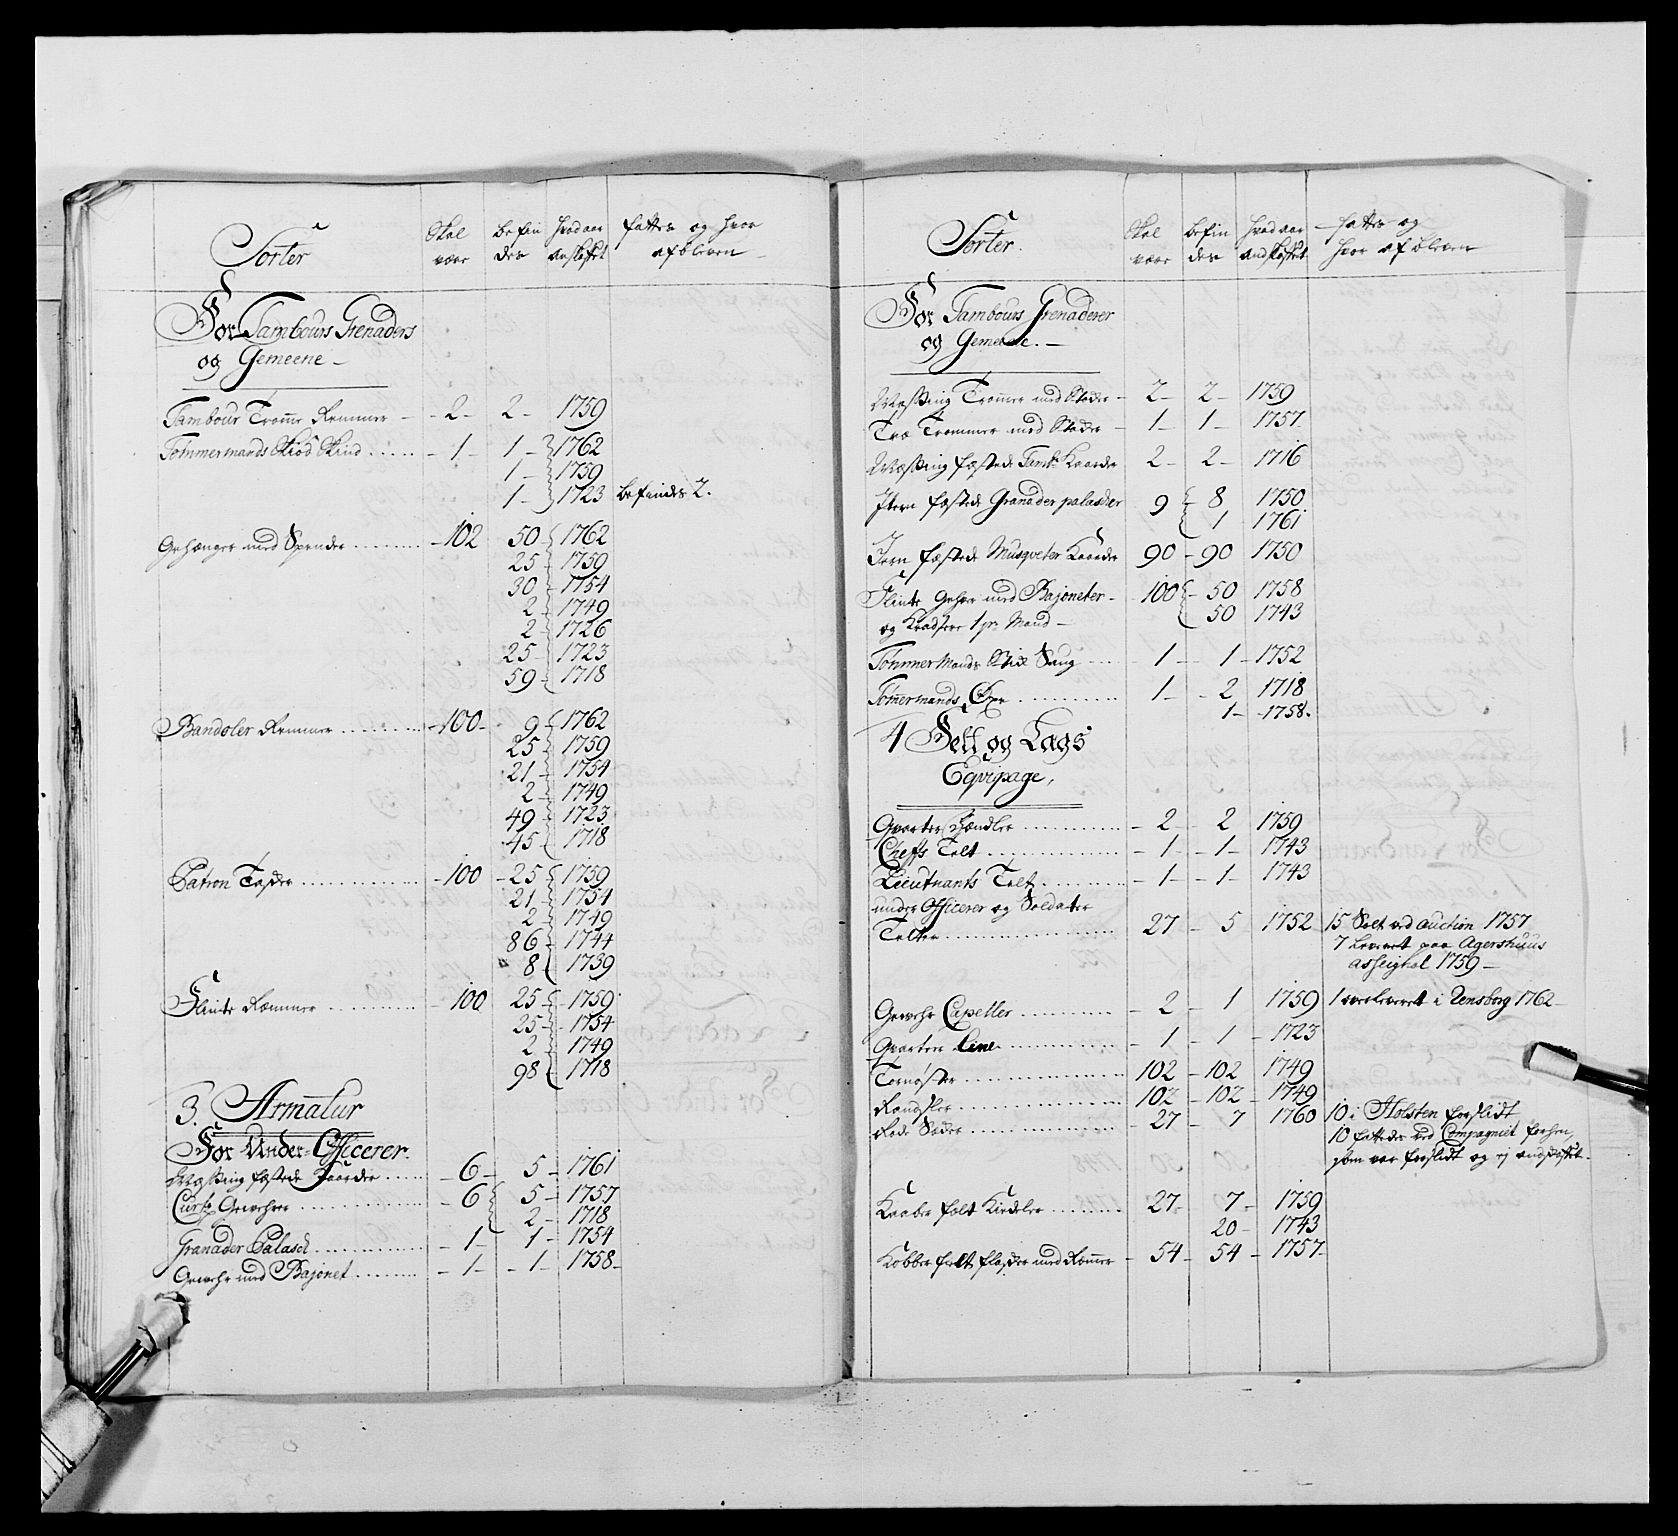 Sorter
Skal være
befin des
hvad aar anskaffet
fattes og hvor afbleven
For Tambours Grenaders
og Gemeene
Tambour Tromme Remmer - 2 - 2 - 1759
Tømmermands Skiød Skind - 1 - 1 - 1762
1 - 1759
1 - 1723 befindes 2.
Gehænger med Spender - 102 50 - 1762
25 - 1759
30 - 1754
2 - 1749
2 - 1726
25 - 1723
59 - 1718
Bandoler Remmer - 100 - 9 - 1762
25 - 1759
21 - 1754
2 - 1749
49 - 1723
45 - 1718
Patron Tasker - 100 - 25 - 1759
21 - 1754
2 - 1749
86 - 1744
8 - 1739
Flinte Remmer - 100 25 - 1759
25 - 1754
2 - 1749
98 - 1718
3. Armatur
For Under-Officerer
Messing fæstede Kaarder - 6 - 5 - 1761
Gewehrer - 6 5 - 1757
2 - 1718
Granader Palasch - 1 - 1 - 1754
Gewehr med Bajonet - 1 - 1 - 1758
Sorter.
Skal være
befin des
hvad aar andskaffet
fattes og
hvor afbleven
For Tambours Grenaderer
og Gemeene. -
Messing Trommer med Stokker - 2 - 2 - 1759
Træ Trommer med Stokker - 1 - 1 - 1757
Messing fæstede Tamb. Kaarder 2 - 2 - 1716
Item fæstede Granader palasker 9 - 8 1750
1 1761
Item fæstede Musqveter Kaarder 90 - 90 1750
Flinte Gehær med Bajoneter - 100 - 50 1758
og Kradsere 1 pr. Mand - 50 1743
Tømmermands Stik Saug - 1 - 1 - 1752
Tømmermands Øxe - 1 - 2 1718
1 - 1758.
4 Felt og Lags
Eqvipage,
Qvarteer - 2 - 2 1759
Cheffs Telt - 1 - 1 - 1743
Lieutnants Telt - 1 - 1 - 1743
under Officerer og Soldater
Telter - 27 - 5 1752 15 Solt ved auction 1757
7 Leveret paa Agershuus
1759 -
Gewehr Capeller - 2 - 1 1759 1 overleveret i Rensborg 1762
Qvarteer Line - 1 - 1 - 1723
Tornøster - 102 - 102 - 1749
- 102 - 102 - 1749
- 27 - 7 1760 10 i Holsten forslidt
10 fattedes ved Compagniet forhen,
som var forslidt og ej andskaffet.
Kaaber felt Kiedeler - 27 - 7 - 1759
20 - 1743
Kobber felt flasker med Remmer - 54 - 54 - 1757